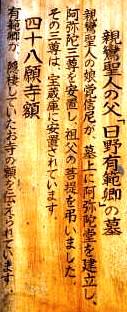 親鸞聖人の父「日野有範卿の墓」
親鸞聖人の娘覚信尼が、墓上に阿弥陀堂を建立し、
阿弥陀三尊を安置し、祖父の菩提を弔いました。
その三尊は、宝蔵庫に安置されています。
四十八願寺額
有範卿が、隠棲していたお寺の額と伝えられています。